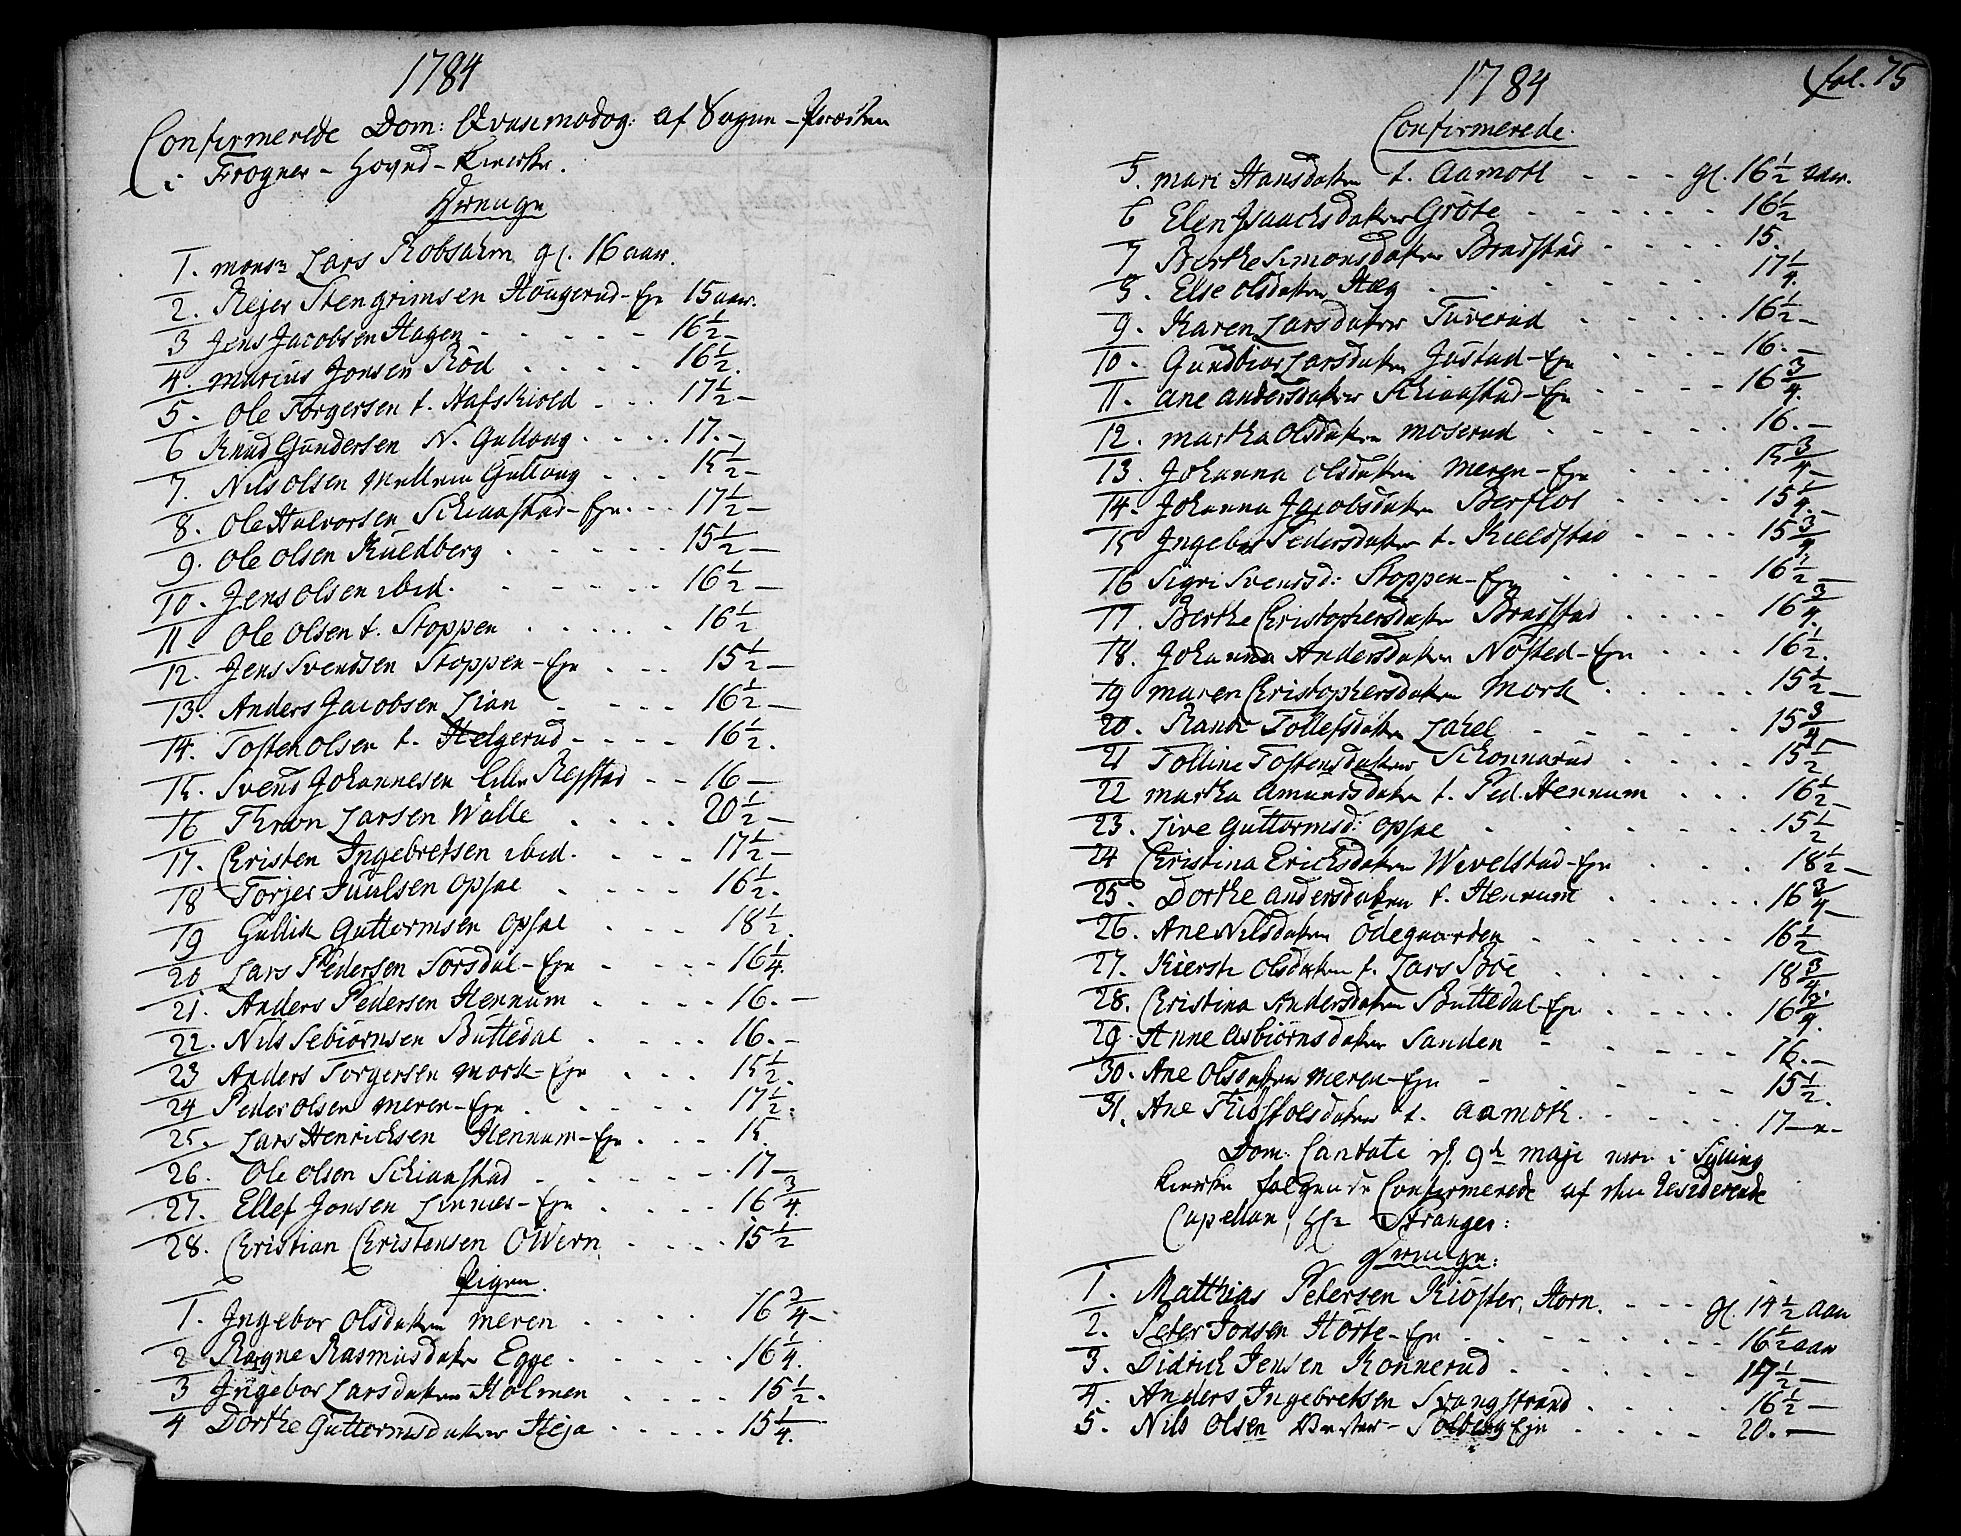 1784
Confirmerede Dom: Qvasimodog: af Sogne-Præsten
i Frogner-Hoved-Kircke.
Drenge
1. Mons: Lars Robsahm gl. 16 aar.
2. Rejer Stengrimsen Hougerud-Eje 15 aar.
3 Jens Jacobsen Hagen - - - - - 16 1/2 -
4. Marius Jonsen Röd . . . . 16 1/2.
5. Ole Torgersen t. Hafskiold - - - 17 1/2 -
6 Knud Gundersen N. Gullaug . . . . 17. -
7. Nils Olsen Mellem Gullaug - - - 15 1/2 -
8. Ole Halvorsen Schiaastad-Eje . . . 17 1/2 -
9. Ole Olsen Kuldberg . . . . . 15 1/2 -
10. Jens Olsen ibid. - - - - - 16 1/2 -
11. Ole Olsen t. Stoppen . . . . . . 16 1/2
12. Jens Svendsen Stoppen-Eje . . . . 15 1/2 -
13. Anders Jacobsen Lian . . . . 16 1/2 -
14. Tosten Olsen t. Helgerud - - - - 16 1/2.
15. Svend Johannesen Lille Rejstad - - 16 -
16 Thron Larsen Walle . . . . 20 1/2 -
17. Christen Ingebretsen ibid. . . . . 17 1/2 -
18 Torjer Juulsen Opsal . . . . 16 1/2.
19 Gullik Guttormsen Opsal . . . 18 1/2.
20 Lars Pedersen Sørsdal-Eje . . . . 16 1/4.
21. Anders Pedersen Hennum . . . . 16. -
22. Nils Sebiörnsen Buttedal . . . . 16. -
23 Anders Torgersen Mork-Eje . . . 15 1/2.
24 Peder Olsen Meren-Eje . . . . . . 17 1/2.
25. Lars Henrichsen Hennum-Eje . . . 15.
26. Ole Olsen Schiaastad . . . . . . 17 -
27. Ellef Jonsen Linnes-Eje . . . . 16 3/4.
28. Christian Christensen Owern . . . . 15 1/2
Piger.
1. Ingebor Olsdatter Meren . . . . 16 3/4 -
2 Ragne Rasmusdatr Egge . . . . . . 16 1/4.
3 Ingebor Larsdatter Holmen . . . . 16 1/2.
4 Dorthe Guttormsdatter Heja . . . . . 15 1/4.
1784
fol. 75
Confirmerede.
5. Mari Hansdatter t. Aamoth - - - gl. 16 1/2 aar.
6 Elen Isaachsdatter Gröte . . . . . . 16 1/2
7 Berthe Simonsdatter Bradstad . . . . 15.
8. Else Olsdatter Hæg . . . . . . 17 1/4.
9. Karen Larsdatter Tuverud . . . . . 16 1/2 -
10. Gundbior Larsdatter Justad-Eje . . . . 16. -
11. Ane Andersdatter Schiaastad-Eje . . . . 16 3/4.
12. Martha Olsdatter Moserud . . . . . . 16. -
13. Johanna Olsdatter Meren-Eje . . . . 15 3/4 -
14. Johanna Jacobsdatter Berflot . . . . 15 1/4. -
15 Ingebor Pedersdatter t. Kieldstad . . . . 15 3/4
16 Sigri Svendsd: Stoppen-Eje . . . . . 16 1/2 -
17. Berthe Christophersdatter Bradstad . . . . 16 3/4.
18. Johanna Andersdatter Nösted-Eje . . . . 16 1/2.
19 Maren Christophersdatter Mork . . . . . 15 1/2 -
20. Randi Tollefsdatter Lahel . . . . . 15 3/4
21 Tolline Tostensdatter Schonnarud . . . . 15 1/2
22 Martha Amundsdatter t. Ped. Hennum . . . 16 1/2 -
23. Live Guttormsd: Opsal . . . . . . . 15 1/2
24 Christina Erichsdatter Wivelstad-Eje . . . . 18 1/2 -
25. Dorthe Andersdatter t. Hennum . . . . . . 16 3/4 -
26. Ane Nilsdatter Ödegaarden . . . . . . 16 1/2
27. Kiersti Olsdatter t. Lars Böe . . . . . . 18 3/4
28. Christina Andersdatter Buttedal-Eje . . . . . 16 3/4.
29. Anne Asbiörnsdatter Sanden - . . . . . 16. -
30. Ane Olsdatter Meren-Eje - . . . . . 15 1/2.
31. Ane Kiöstolsdatter t. Aamoth. . . . . . 17 -
Dom: Cantate d. 9de Maji var i Sylling
Kircke følgende Confirmerede af den Residerende
Capellan, Hr. Stranger:
Drenge:
1. Matthias Petersen Kiöster, Horn. . . . gl. 14 1/2 aar
2. Peter Jonsen Horte-Eje . . . . . . . . 16 1/2 aar
3. Didrich Jensen Konnerud . . . . . . 17 1/2 -
4. Anders Ingebretsen Svangstrand . . . . . 16 1/2 -
5. Nils Olsen Vester-Solberg Eje . . . . . 20. -